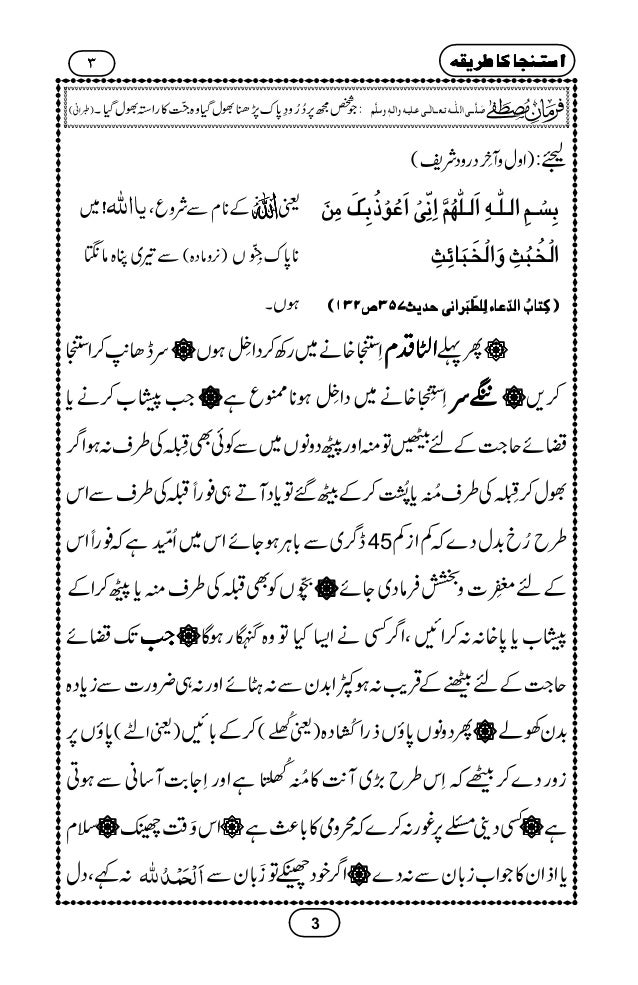 استنجا کا طریقہ
۳
فرمانِ مصطفٰے صلّی اللہ تعالٰی علیہ والہٖ وسلّم : جو شخص مجھ پر دُرُودِ پاک پڑھنا بھول گیا وہ جنّت کا راستہ بھول گیا ۔ (طبرانی)
لیجئے : ( اول و آخر درود شریف )
بِسْمِ اللّٰهِ اَللّٰهُمَّ اِنِّیْ اَعُوْذُ بِکَ مِنَ
الْخُبُثِ وَالْخَبَائِثِ
(کِتابُ الدّعاء لِلطَّبَرانی حدیث۳۵۷ص۱۳۲)
یعنی اللہ عَزَّوَجَلَّ کے نام سے شروع، یا اللہ! میں
ناپاک جِنّوں (نر و مادہ) سے تیری پناہ مانگتا
ہوں۔
۞ پھر پہلے الٹا قدم اِستنجا خانے میں رکھ کر داخِل ہوں ۞ سر ڈھانپ کر استنجا
کریں ۞ ننگے سر اِستِنجا خانے میں داخِل ہونا ممنوع ہے ۞ جب پیشاب کرنے یا
قضائے حاجت کے لئے بیٹھیں تو منہ اور پیٹھ دونوں میں سے کوئی بھی قِبلہ کی طرف نہ ہو اگر
بھول کر قِبلہ کی طرف مُنہ یا پُشت کر کے بیٹھ گئے تو یاد آتے ہی فوراً قبلہ کی طرف سے اس
طرح رُخ بدل دے کہ کم از کم 45 ڈگری سے باہر ہو جائے اس میں اُمّید ہے کہ فوراً اس
کے لئے مغفِرت و بخشش فرما دی جائے ۞ بچّوں کو بھی قبلہ کی طرف منہ یا پیٹھ کرا کے
پیشاب یا پاخانہ نہ کرائیں ،اگر کسی نے ایسا کیا تو وہ گنہگار ہوگا ۞ جب تک قضائے
حاجت کے لئے بیٹھنے کے قریب نہ ہو کپڑا بدن سے نہ ہٹائے اور نہ ہی ضرورت سے زیادہ
بدن کھولے ۞ پھر دونوں پاؤں ذرا کُشادہ (یعنی کُھلے ) کر کے بائیں (یعنی الٹے ) پاؤں پر
زور دے کر بیٹھے کہ اِس طرح بڑی آنت کا مُنہ کُھلتا ہے اور اِجابت آسانی سے ہوتی
ہے ۞ کسی دینی مسئلے پر غور نہ کرے کہ محرومی کا باعث ہے ۞ اس وَقت چھینک ۞ سلام
یا اذان کا جواب زبان سے نہ دے ۞ اگر خود چھینکے تو زَبان سے اَلْحَمْدُ لِلّٰه نہ کہے ، دل
3